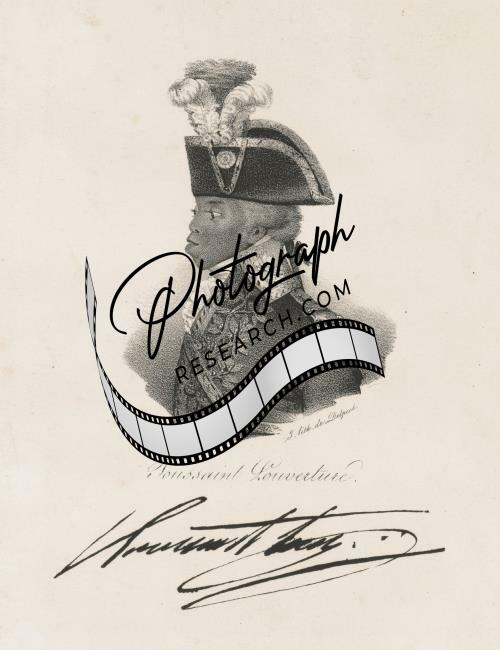 Photograph
RESEARCH.COM
I. lith. de Delpech.
Toussaint Louverture.